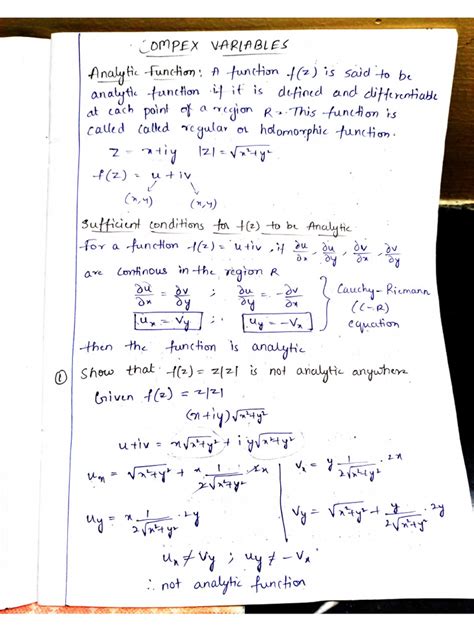 COMPEX VARIABLES
Analytic Function: A function f(z) is said to be
analytic function if it is defined and differentiable
at each point of a region R. This function is
called called regular or holomorphic function.
z = x+iy |z| = √x²+y²
f(z) = u + iv
(x,y) (x,y)
Sufficient conditions for f(z) to be Analytic
For a function f(z) = u+iv, if ∂u/∂x, ∂u/∂y, ∂v/∂x, ∂v/∂y
are continous in the region R
∂u/∂x = ∂v/∂y ; ∂u/∂y = -∂v/∂x } Cauchy-Riemann
(C-R)
ux = vy ; uy = -vx equation
then the function is analytic
① Show that f(z) = z|z| is not analytic anywhere
Given f(z) = z|z|
(x+iy)√x²+y²
u+iv = x√x²+y² + i y√x²+y²
ux = √x²+y² + x 1/2√x²+y² · 2x | vx = y 1/2√x²+y² · 2x
uy = x 1/2√x²+y² · 2y | vy = √x²+y² + y/2√x²+y² · 2y
ux ≠ vy ; uy ≠ -vx
∴ not analytic function